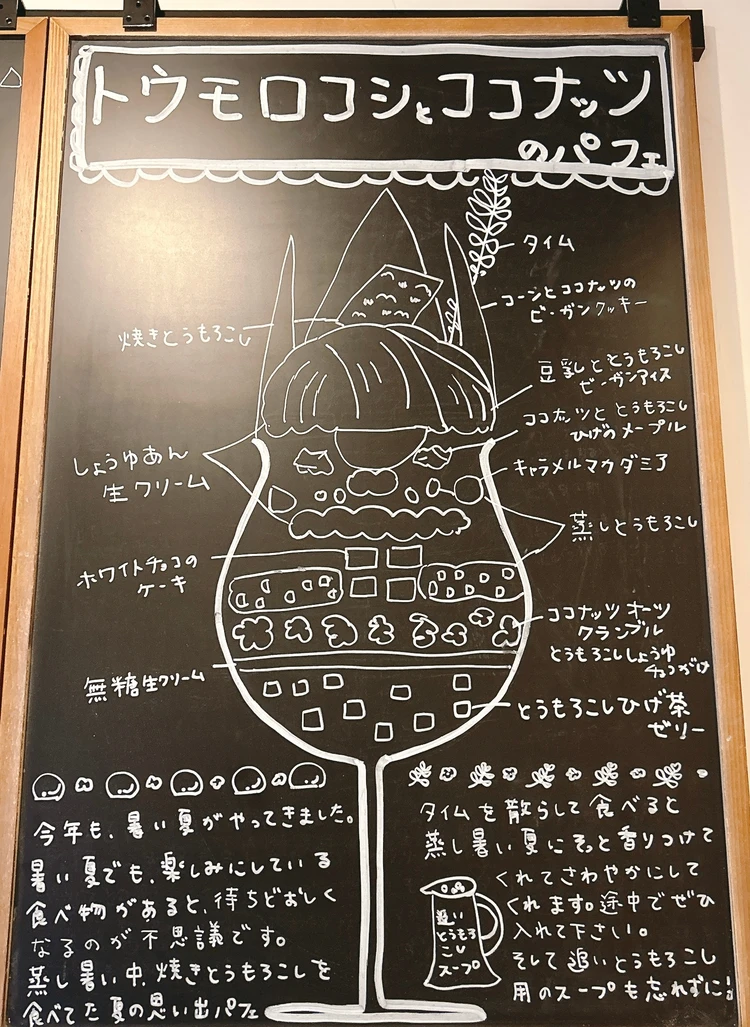 トウモロコシとココナッツ
のパフェ
タイム
コーンとココナッツの
ビーガンクッキー
焼きとうもろこし
豆乳ととうもろこし
ビーガンアイス
ココナッツととうもろこし
ひげのメープル
しょうゆあん
生クリーム
キャラメルマカダミア
蒸しとうもろこし
ホワイトチョコの
ケーキ
ココナッツオーツ
クランブル
とうもろこししょうゆ
チョコがけ
無糖生クリーム
とうもろこしひげ茶
ゼリー
今年も、暑い夏がやってきました。
暑い夏でも、楽しみにしている
食べ物があると、待ちどおしく
なるのが不思議です。
蒸し暑い中、焼きとうもろこしを
食べてた夏の思い出パフェ
タイムを散らして食べると
蒸し暑い夏にそっと香りつけて
くれてさわやかにして
くれます。途中でぜひ
入れて下さい。
そして追いとうもろこし
用のスープも忘れずに!
追い
とうもろ
こし
スープ